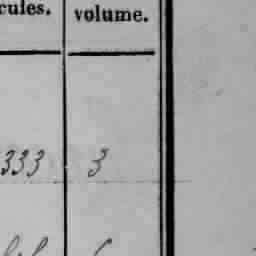 cules. volume.
333 3